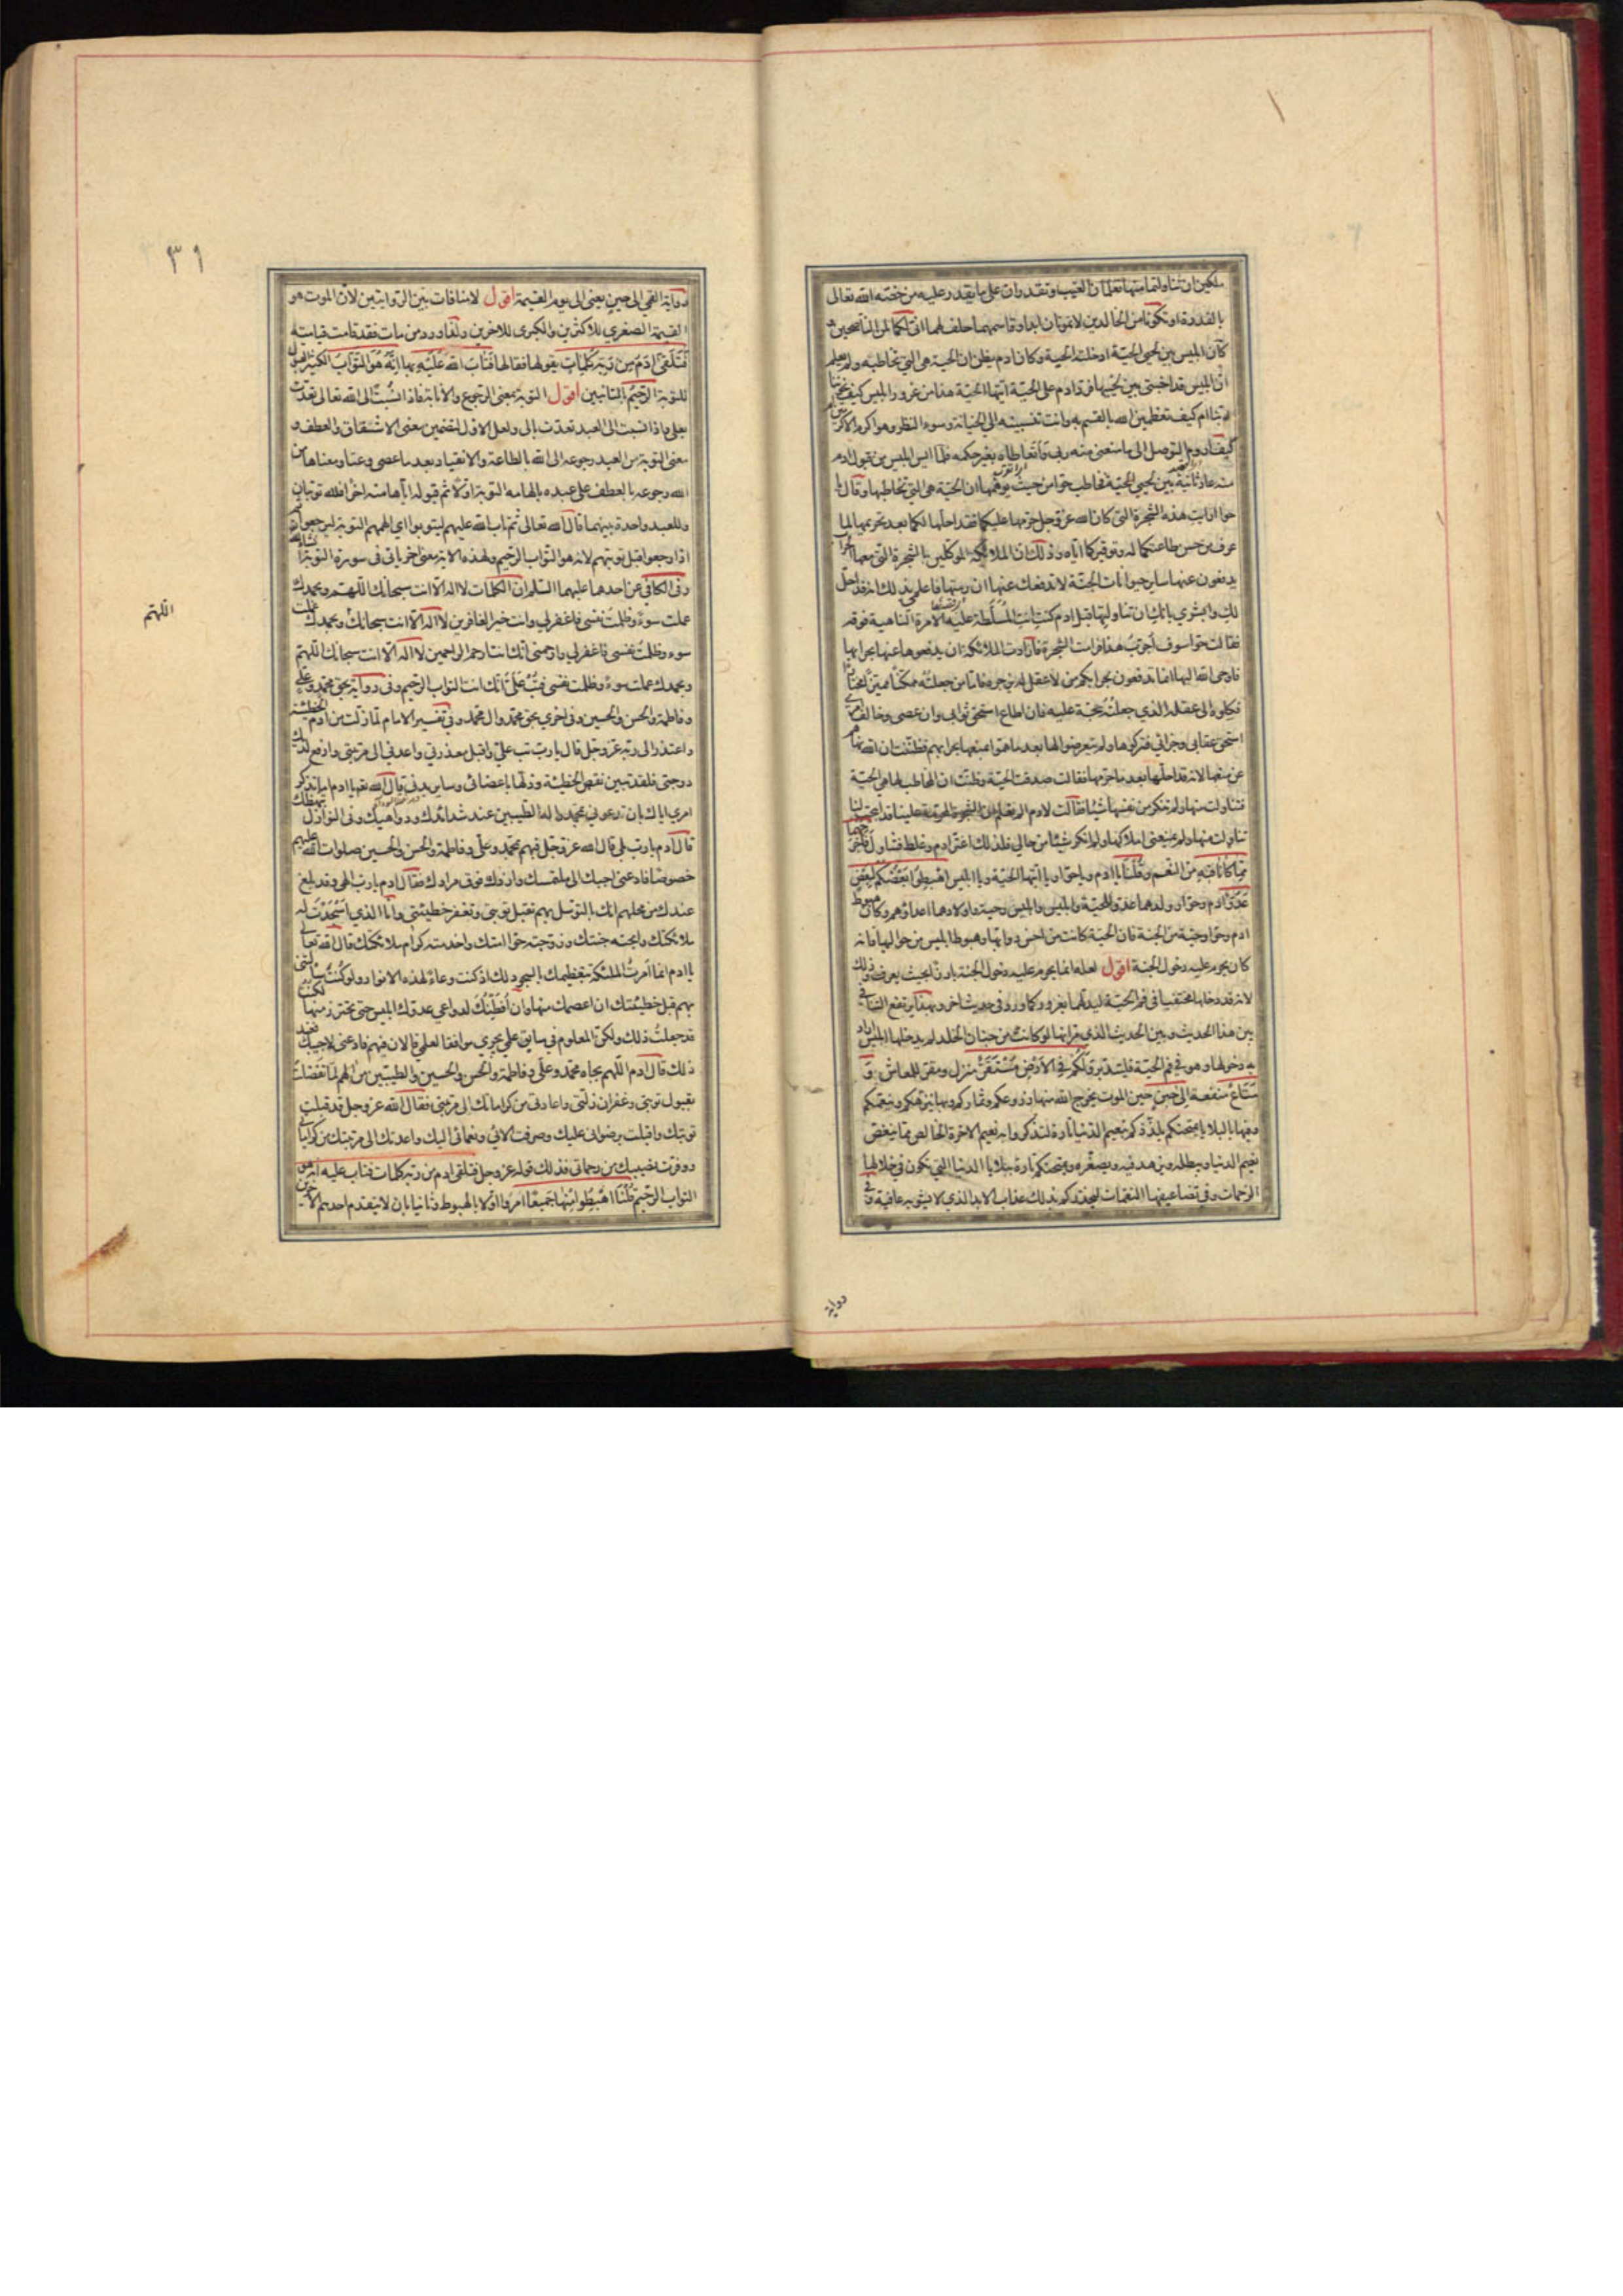 ملكين ان تناولتما منها تعلمان الغيب وتقدران على ما يقدر عليه من خصه الله تعالى
بالقدرة او تكونا من الخالدين لا تموتان ابدا وقاسمهما حلف لهما اني لكما لمن الناصحين و
كان ابليس بين لحيي الحية ادخلته الحية وكان ادم يظن ان الحية هي التي تخاطبه ولم يعلم
ان ابليس قد اختبى بين لحييها فرد ادم على الحية ايتها الحية هذا من غرور ابليس كيف يخوننا
ربنا ام كيف تعظمين الله بالقسم به وانت تنسبينه الى الخيانة وسوء النظر وهو اكرم الاكرمين ام
كيف اروم التوصل الى ما منعني منه ربي واتعاطاه بغير حكمه فلما ايس ابليس من قبول ادم
منه عاد ثانية بين لحيي الحية فخاطب حوا من حيث يوهمها ان الحية هي التي تخاطبها وقال يا
حوا ارايت هذه الشجرة التي كان الله عز وجل حرمها عليكما فقد احلها لكما بعد تحريمها لما
عرف من حسن طاعتكما له وتوقيركما اياه وذلك ان الملائكة الموكلين بالشجرة التي معها الحراب
يدفعون عنها ساير حيوانات الجنة لا تدفعك عنها ان رمتها فاعلمي بذلك انه قد احل
لك وابشري بانك ان تناولتها قبل ادم كنت انت المسلطة عليه الامرة الناهية فوقه
فقالت حوا سوف اجرب هذا فرامت الشجرة فارادت الملائكة ان يدفعوها عنها بحرابها
فاوحى الله اليها انما تدفعون بحرابكم من لا عقل له يزجره فاما من جعلته ممكنا مميزا مختارا
فكلوه الى عقله الذي جعلته حجة عليه فان اطاع استحق ثوابي وان عصى وخالف امري
استحق عقابي وجزائي فتركوها ولم يتعرضوا لها بعد ما هموا بمنعها بحرابهم فظنت ان الله نهاهم
عن منعها لانه قد احلها بعد ما حرمها فقالت صدقت الحية وظنت ان المخاطب لها هي الحية
فتناولت منها ولم تنكر من نفسها شيئا فقالت لادم الم تعلم ان الشجرة المحرمة علينا قد ابيحت لنا
تناولت منها ولم يمنعني املاكها ولم انكر شيئا من حالي فلذلك اغتر ادم وغلط فتناول فاخرجهما
مما كانا فيه من النعم وقلنا يا ادم ويا حوا ويا ايتها الحية ويا ابليس اهبطوا بعضكم لبعض
عدو ادم وحوا وولدهما عدو للحية وابليس وابليس والحية واولادهما اعداؤهم وكان هبوط
ادم وحوا وحية من الجنة فان الحية كانت من احسن دوابها وهبوط ابليس من حواليها فانه
كان يحرم عليه دخول الجنة اقول لعله انما يحرم عليه دخول الجنة بارزا بحيث يعرف وذلك
لانه قد دخلها مختفيا في فم الحية ليدلهما بغرور كما ورد في حديث اخر وبهذا يرتفع التنافي
بين هذا الحديث وبين الحديث الذي مر انها لو كانت من جنان الخلد لم يدخلها ابليس اراد
به دخولها وهو في فم الحية فليتدبر ولكم في الارض مستقر منزل ومقر للمعاش و
متاع منفعة الى حين حين الموت يخرج الله منها زروعكم وثماركم وبها ينزهكم وينعمكم
وفيها بالبلايا يمتحنكم يلذذكم بنعيم الدنيا تارة لتذكروا به نعيم الاخرة الخالص مما ينغص
نعيم الدنيا ويبطله ويزهد فيه ويصغره ويمتحنكم تارة ببلايا الدنيا التي تكون في خلالها
الرحمات وفي تضاعيفها النقمات ليحذركم بذلك عذاب الابد الذي لا يشوبه عافية وفي
رواية
٣١
رواية القمي الى حين يعني الى يوم القيمة اقول لا منافات بين الروايتين لان الموت هو
القيمة الصغرى للاكثرين والكبرى للاخرين ولما ورد من مات فقد قامت قيامته
فتلقى ادم من ربه كلمات يقولها فقالها فتاب الله عليه بها انه هو التواب الكثير القبول
للتوبة الرحيم بالتائبين اقول التوبة بمعنى الرجوع والانابة فاذا نسبت الى الله تعالى تعدت
بعلى واذا نسبت الى العبد تعدت بالى ولعل الاول لتضمين معنى الاشفاق والعطف و
معنى التوبة من العبد رجوعه الى الله بالطاعة والانقياد بعد ما عصى وعتا ومعناها من
الله رجوعه بالعطف على عبده بالهامه التوبة اولا ثم قبوله اياها منه اخرا فلله توبتان
وللعبد واحدة بينهما قال الله تعالى ثم تاب الله عليهم ليتوبوا اي الهمهم التوبة ليرجعوا ثم
اذا رجعوا قبل توبتهم لانه هو التواب الرحيم ولهذه الاية معنى اخر ياتي في سورة التوبة انشاء الله
وفي الكافي عن احدهما عليهما السلم ان الكلمات لا اله الا انت سبحانك اللهم وبحمدك
عملت سوءً وظلمت نفسي فاغفر لي وانت خير الغافرين لا اله الا انت سبحانك وبحمدك عملت
اللهم
سوء وظلمت نفسي فاغفر لي وارحمني انك انت ارحم الراحمين لا اله الا انت سبحانك اللهم
وبحمدك عملت سوءً وظلمت نفسي فتب علي انك انت التواب الرحيم وفي رواية بحق محمد وعلي
وفاطمة والحسن والحسين وفي اخرى بحق محمد وال محمد وفي تفسير الامام لما زلت من ادم الخطيئة
واعتذر الى ربه عز وجل قال يا رب تب علي واقبل معذرتي واعدني الى مرتبتي وارفع لديك
درجتي فلقد تبين نقص الخطيئة وذلها باعضائي وساير بدني قال الله تعم يا ادم اما تذكر
امري اياك بان تدعوني بمحمد واله الطيبين عند شدائدك ودواهيك وفي النوازل تبهظك
قال ادم يا رب بلى قال الله عز وجل فبهم بمحمد وعلي وفاطمة والحسن والحسين صلوات الله عليهم
خصوصا فادعني اجبك الى ملتمسك وازدك فوق مرادك فقال ادم يا رب الهي وقد بلغ
عندك من محلهم انك بالتوسل بهم تقبل توبتي وتغفر خطيئتي وانا الذي اسجدت له
ملائكتك وابحته جنتك وزوجته حوا امتك واخدمته كرام ملائكتك قال الله تعالى
يا ادم انما امرت الملئكة بتعظيمك بالسجود لك اذ كنت وعاءً لهذه الانوار ولو كنت سالتني
بهم قبل خطيئتك ان اعصمك منها وان افطنك لدواعي عدوك ابليس حتى تحترز منها لكنت
قد جعلت ذلك ولكن المعلوم في سابق علمي يجري موافقا لعلمي فالان فبهم فادعني لاجيبك فعند
ذلك قال ادم اللهم بجاه محمد وعلي وفاطمة والحسن والحسين والطيبين من الهم لما تفضلت
بقبول توبتي وغفران زلتي واعادتي من كراماتك الى مرتبتي فقال الله عز وجل قد قبلت
توبتك واقبلت برضواني عليك وصرفت الائي ونعمائي اليك واعدتك الى مرتبتك من كراماتي
ووفرت نصيبك من رحماتي فذلك قوله عز وجل فتلقى ادم من ربه كلمات فتاب عليه انه هو
التواب الرحيم قلنا اهبطوا منها جميعا امروا اولا بالهبوط وثانيا بان لا يتقدم احدهم الاخرين